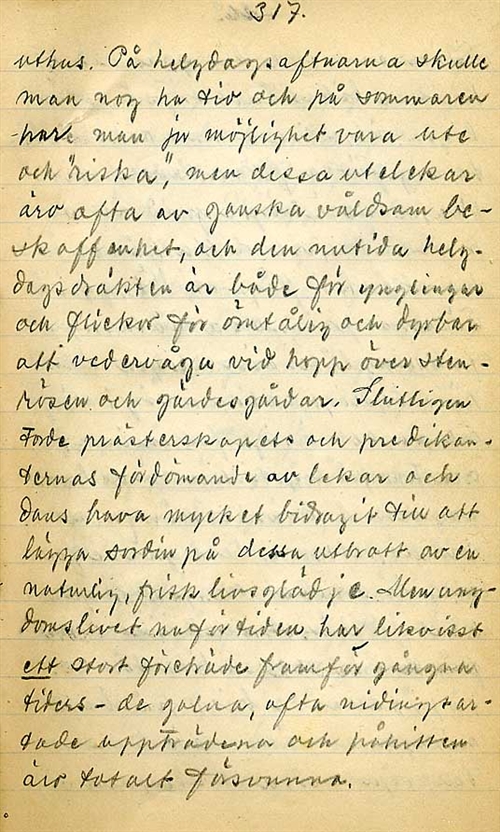 317.
uthus. På helgdagsaftnarna skulle
man nog ha tid och på sommaren
hare man ju möjlighet vara ute
och "riska", men dessa utelekar
äro ofta av ganska våldsam be-
skaffenhet, och den nutida helg-
dagsdräkten är både för ynglingar
och flickor för ömtålig och dyrbar
att vedervåga vid hopp över sten-
rösen och gärdesgårdar. Slutligen
torde prästerskapets och predikan-
ternas fördömande av lekar och
dans hava mycket bidragit till att
lägga sordin på dessa utbrott av en
naturlig, frisk livsglädje. Men ung-
domslivet nu för tiden har likvisst
ett stort företräde framför gångna
tiders - de galna, ofta nidingsar-
tade uppträdena och påhitten
äro totalt försvunna.